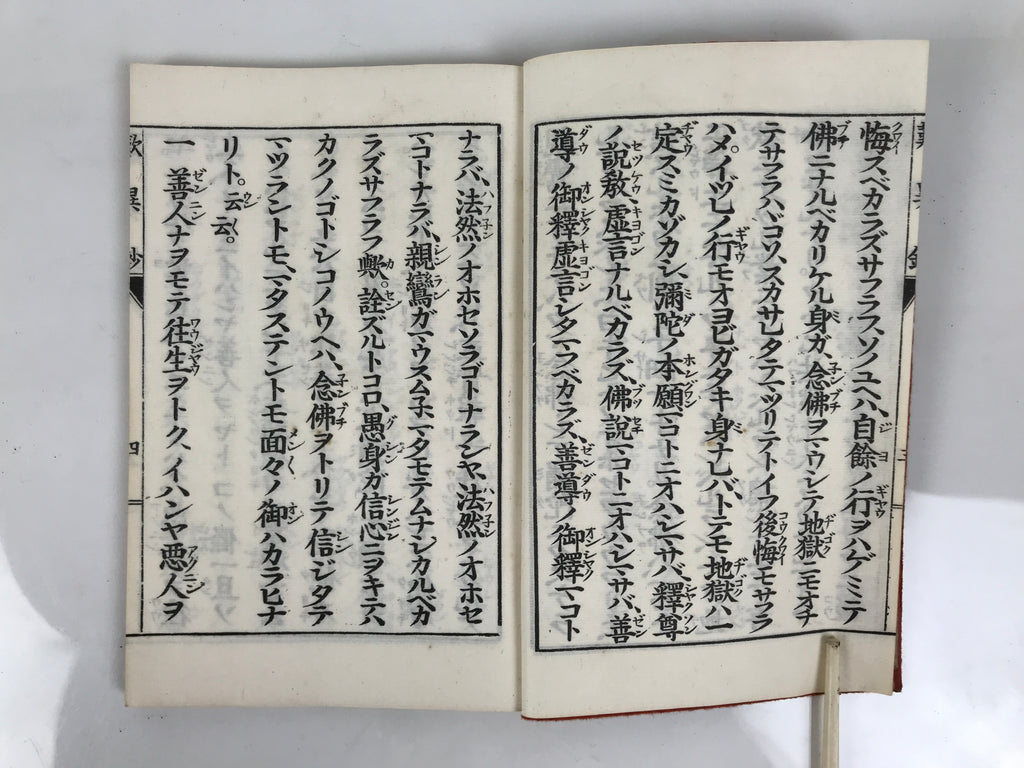 悔スベカラズサフラフ、ソノユヘハ、自餘ノ行ヲハゲミテ
佛ニナルベカリケル身ガ、念佛ヲマウシテ地獄ニモオチ
テサフラハヾコソ、スカサレタテマツリテトイフ後悔モサフラ
ハメ、イヅレノ行モオヨビガタキ身ナレバ、トテモ地獄ハ一
定スミカゾカシ、彌陀ノ本願マコトニオハシマサバ、釋尊
ノ說敎、虛言ナルベカラズ、佛說マコトニオハシマサバ、善
導ノ御釋虛言シタマフベカラズ、善導ノ御釋マコト
ナラバ、法然ノオホセソラゴトナランヤ、法然ノオホセ
マコトナラバ、親鸞ガマウスムネ、マタモテムナシカルベカ
ラズサフラフ歟。詮ズルトコロ、愚身ガ信心ニヲキテハ
カクノゴトシ、コノウヘハ、念佛ヲトリテ信ジタテ
マツラントモ、マタステントモ、面々ノ御ハカラヒナ
リト。云云。
一 善人ナヲモテ往生ヲトク、イハンヤ惡人ヲ
歎異鈔
四